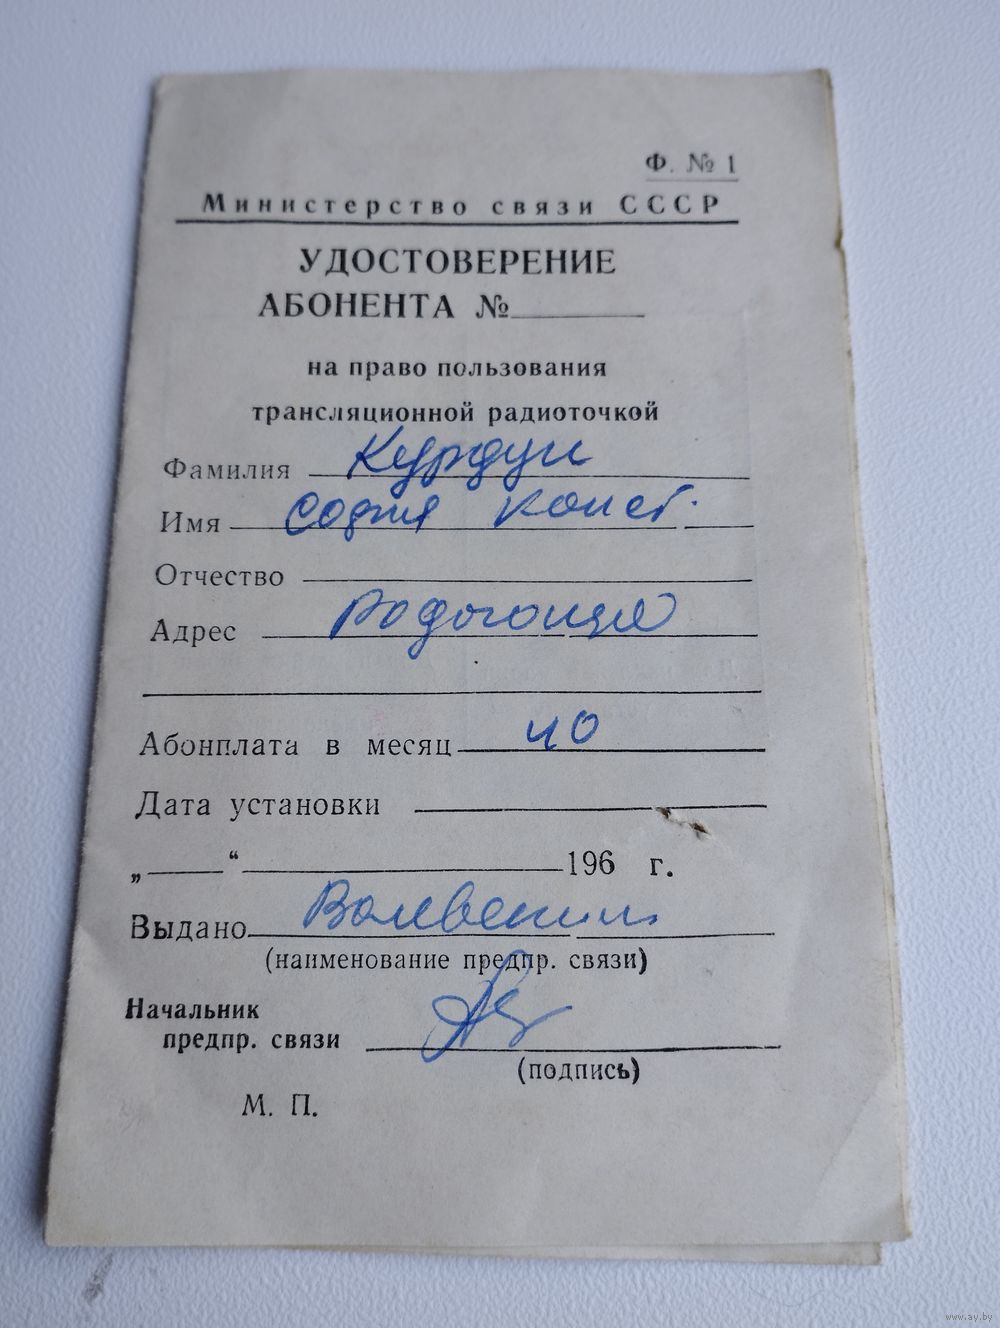 Ф. № 1
Министерство связи СССР
УДОСТОВЕРЕНИЕ
АБОНЕНТА №
на право пользования
трансляционной радиоточкой
Фамилия
Имя София Конст.
Отчество
Адрес
Абонплата в месяц 40
Дата установки
„ “ 196 г.
Выдано
(наименование предпр. связи)
Начальник
предпр. связи
(подпись)
М. П.
www.ay.by